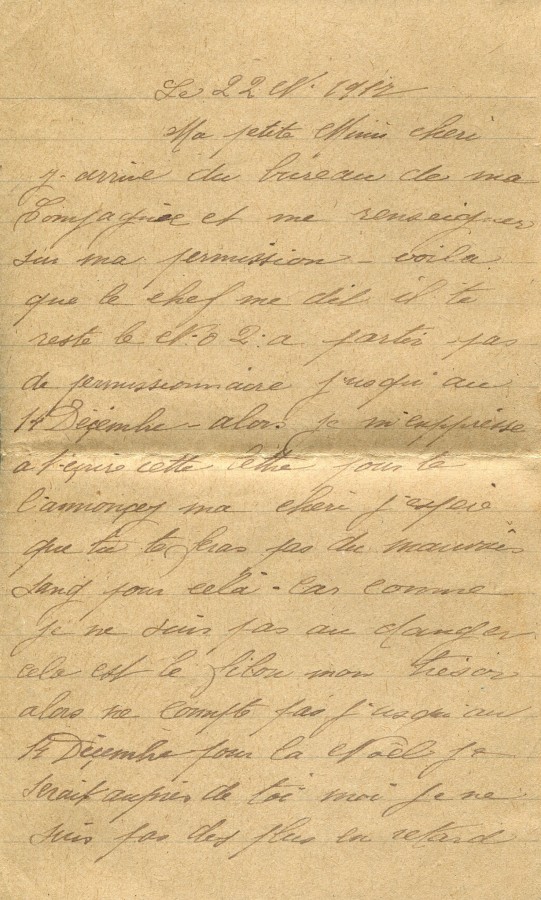 Le 22 N. 1917
Ma petite Mimi cheri
j. arrive du bureau de ma
Compagnie et me renseigner
sur ma permission - voila
que le chef me dit il te
reste le N.o 2. a partir pas
de permissionnaire jusqu'au
14 Decémbre - alors je m'empresse
a t'ecrire cette lettre pour te
l'annoncer ma cheri j'espere
que tu te feras pas du mauvais
sang pour celà - Car comme
je ne suis pas au danger
cela est le filon mon tresor
alors ne compte pas jusqu'au
14 Decémbre pour la Noël je
serait aupres de toi moi je ne
suis pas des plus en retard